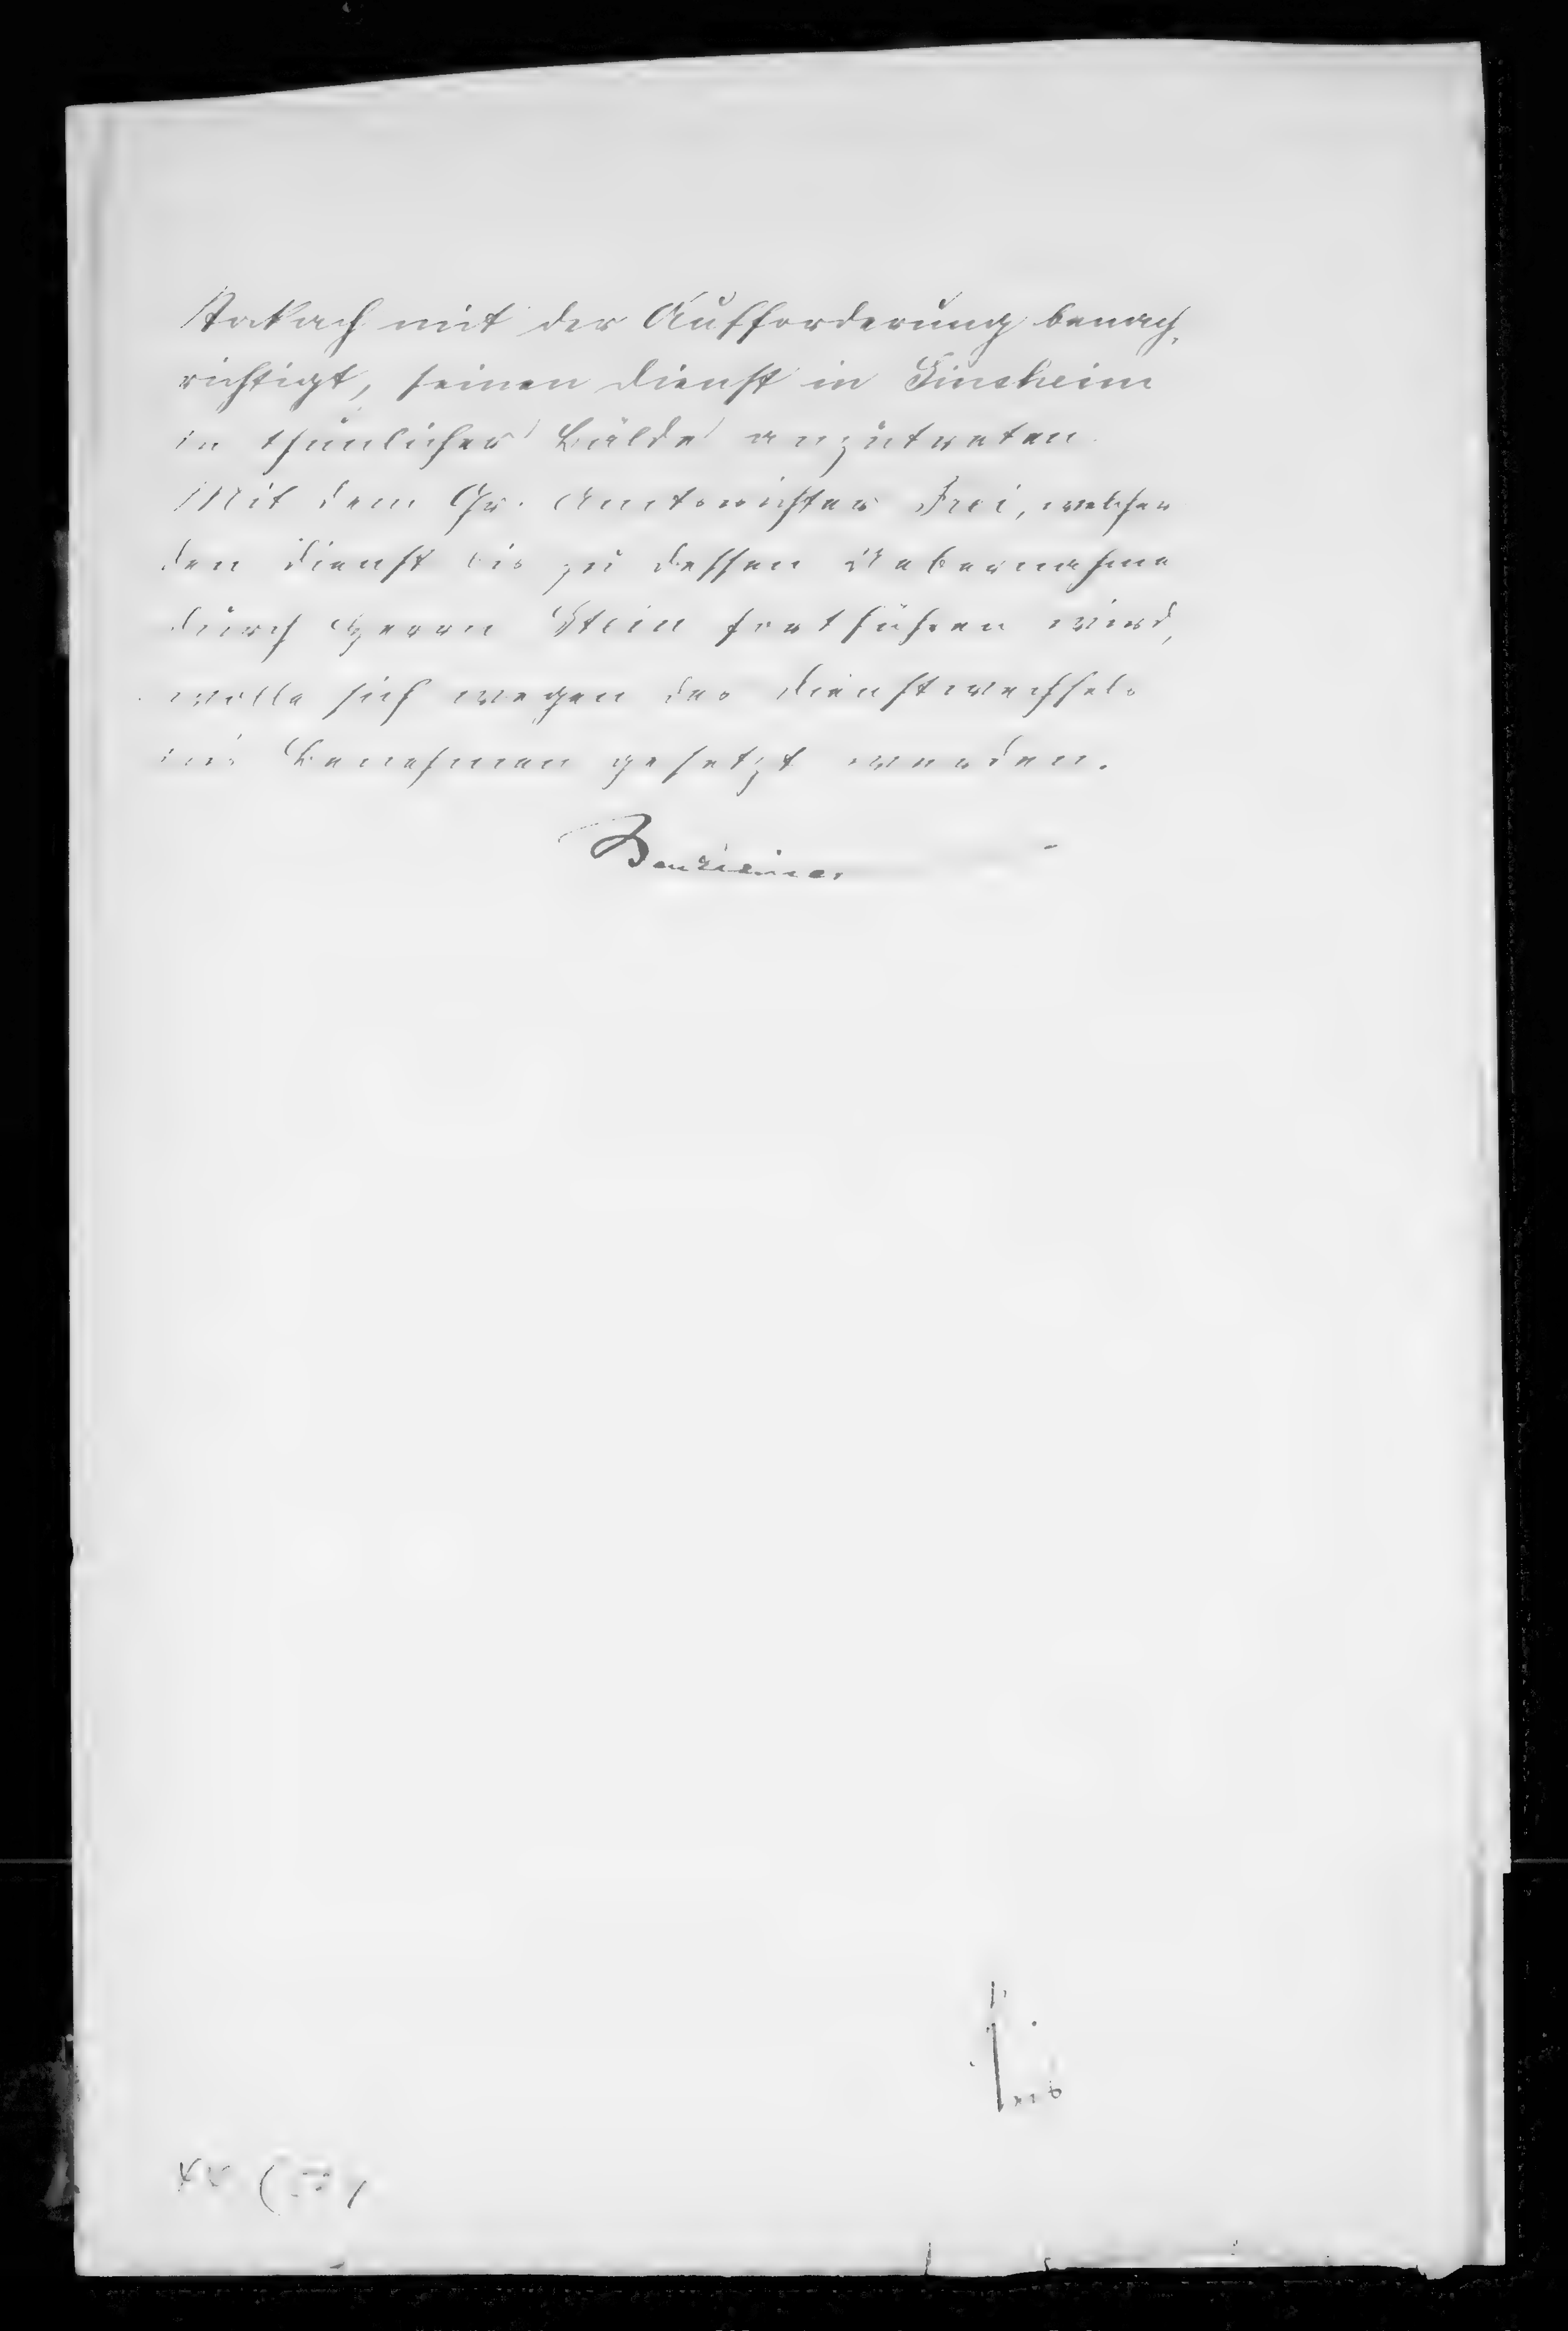 Stockach mit der Aufforderung benach-
richtigt, seinen Dienst in Sinsheim
in thunlicher Bälde anzutreten.
Mit dem Gr. Amtsrichter Frei, welcher
den Dienst bis zu dessen Uebernahme
durch Herrn Stein fortführen wird,
wolle sich wegen des Dienstwechsels
ins Benehmen gesetzt werden.